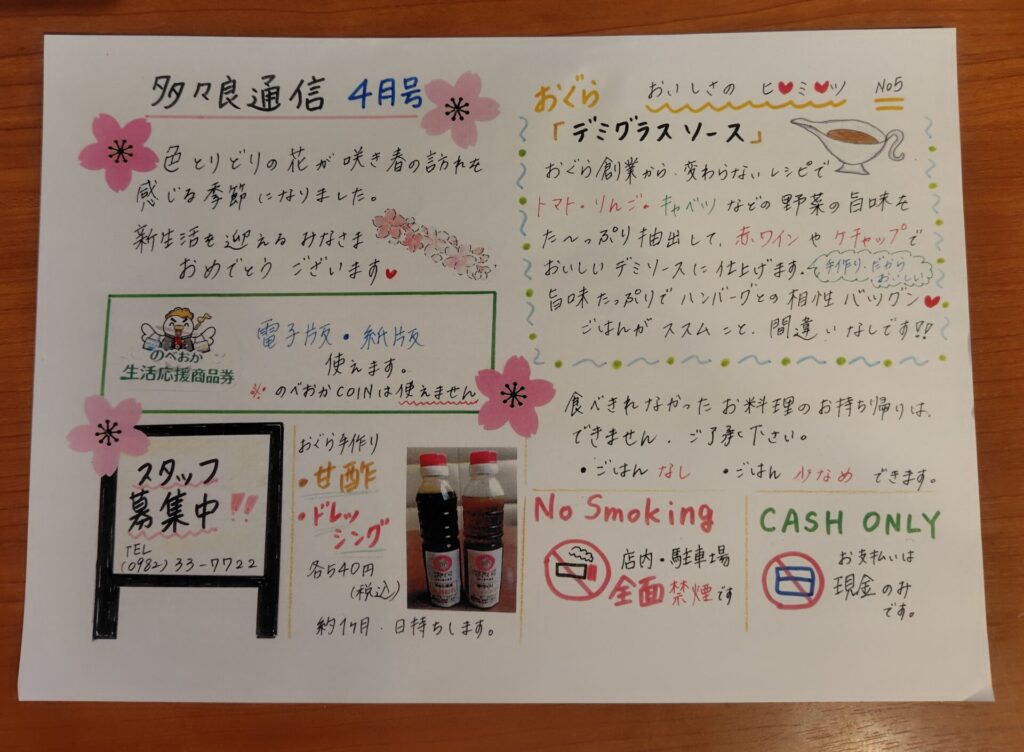 多々良通信 4月号
色とりどりの花が咲き春の訪れを
感じる季節になりました。
新生活を迎えるみなさま
おめでとうございます♥
のべおか
生活応援商品券
電子版・紙版
使えます。
※・のべおかCOINは使えません
スタッフ
募集中!!
TEL
(0982)33-7722
おぐら手作り
・甘酢
・ドレッ
シング
各540円
(税込)
約1ヶ月、日持ちします。
おぐら おいしさの ヒ♥ミ♥ツ No5
「デミグラスソース」
おぐら創業から、変わらないレシピで
トマト・りんご・キャベツなどの野菜の旨味を
た〜っぷり抽出して、赤ワインやケチャップで
おいしいデミソースに仕上げます。
手作り、だから
おいしい
旨味たっぷりでハンバーグとの相性バツグン♥
ごはんがススムこと、間違いなしです!!
食べきれなかったお料理のお持ち帰りは、
できません。ご了承下さい。
・ごはんなし ・ごはん少なめ できます。
No Smoking
店内・駐車場
全面禁煙です
CASH ONLY
お支払いは
現金のみ
です。